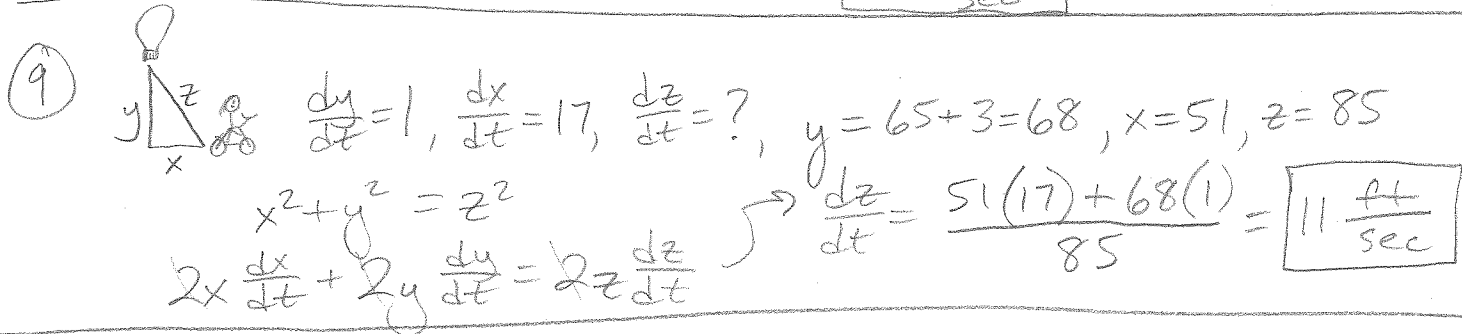 sec
9 y z x dy/dt = 1, dx/dt = 17, dz/dt = ?, y = 65+3=68, x=51, z=85
x² + y² = z²
2x dx/dt + 2y dy/dt = 2z dz/dt → dz/dt = 51(17)+68(1)/85 = 11 ft/sec